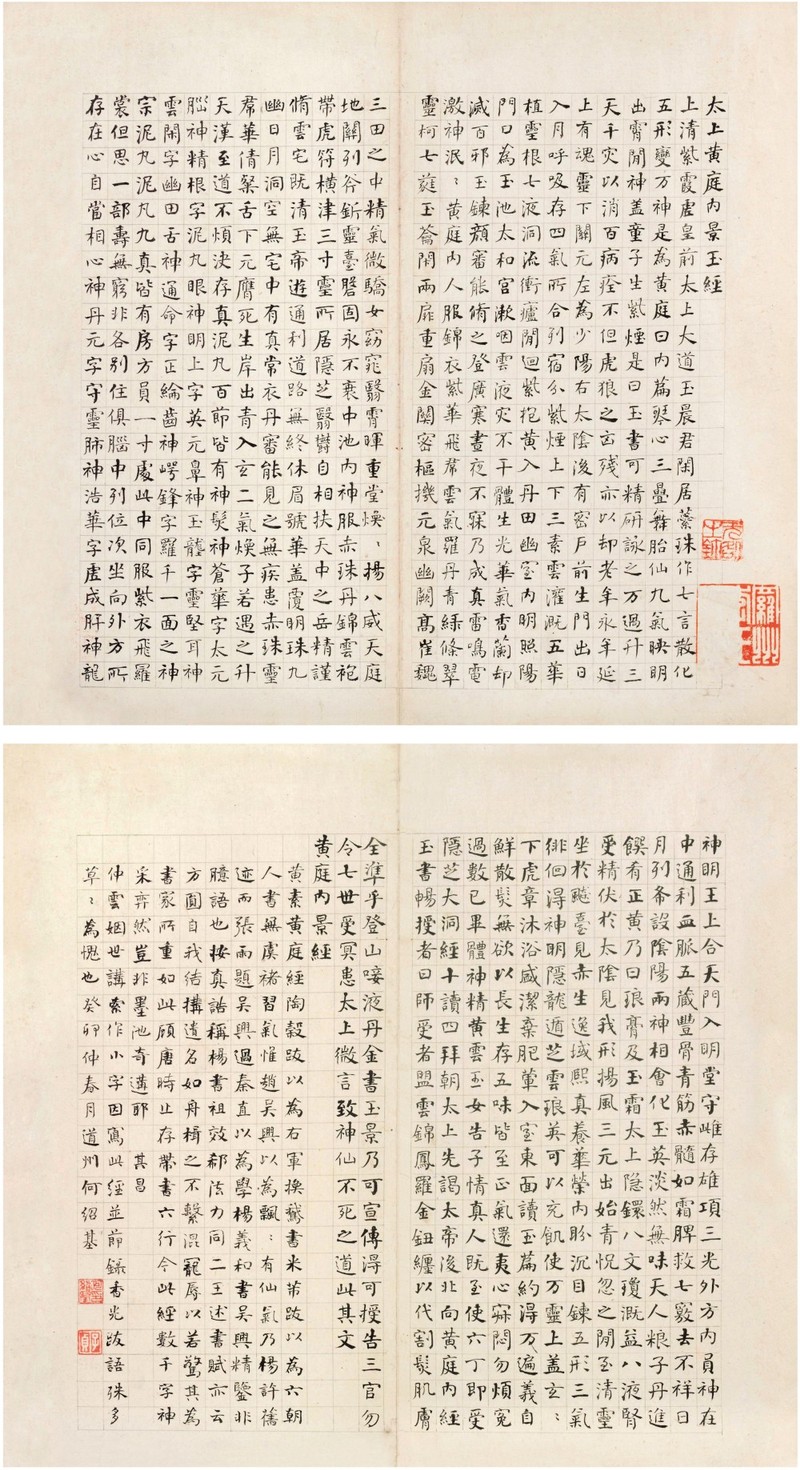 太上黄庭內景玉經
上清紫霞虛皇前太上大道玉晨君閑居蘂珠作七言散化
五形變万神是為黄庭曰內篇琴心三疊舞胎仙九氣映明
出霄閒神蓋童子生紫煙是曰玉書可精研詠之万過升三
天千灾以消百病痊不但虎狼之㐫殘亦以却老年永年延
上有魂靈下關元左為少陽右太陰後有密戶前生門出日
入月呼吸存四氣所合列宿分紫煙上下三素雲灌溉五華
植靈根七液洞流衝廬閒迴紫抱黄入丹田幽室內明照陽
門口為玉池太和宮漱咽雲液灾不干體生光華氣香蘭却
滅百邪玉鍊顏審能脩之登廣寒晝夜不寐乃成真雷鳴電
激神泯〻黄庭內人服錦衣紫華飛帬雲氣羅丹青綠條翠
靈柯七蕤玉籥閉兩扉重扇金關密樞機元泉幽闕髙崖巍
三田之中精氣微驕女窈窕翳霄暉重堂煥〻揚八威天庭
地關列斧斤靈臺盤固永不衰中池內神服赤珠丹錦雲袍
帶虎符橫津三寸靈所居隱芝翳欝自相扶天中之岳精謹
脩雲宅既清玉帝遊通利道路無終休眉號華蓋覆明珠九
幽日月洞空無宅中有真常衣丹審能見之無疾患赤珠靈
帬華倩粲舌下元膺死生岸出青入玄二氣煥子若遇之升
天漢至道不煩決存真泥丸百節皆有神髮神蒼華字太元
腦神精根字泥丸眼神明上字英元鼻神玉壟字靈堅耳神
雲閑字幽田舌神通命字正綸齒神崿鋒字羅千一面之神
宗泥丸泥丸九真皆有房方員一寸處此中同服紫衣飛羅
裳但思一部壽無窮非各別住俱腦中列位次坐向外方所
存在心自當相心神丹元字守靈肺神浩華字虛成肝神龍
神明王上合天門入明堂守雌存雄項三光外方內員神在
中通利血脈五藏豐骨青筋赤髓如霜脾救七竅去不祥日
月列布設陰陽兩神相會化玉英淡然無味天人粮子丹進
饌肴正黄乃曰琅膏及玉霜太上隐鐶八文瓊溉益八液腎
受精伏於太陰見我形揚風三元出始青怳忽之閒至清靈
坐於飈臺見赤生逸域熙真養華榮內盼沉目鍊五形三氣
徘徊得神明隠龍遁芝雲琅英可以充飢使万靈上蓋玄〻
下虎章沐浴咸潔棄肥葷入室東面讀玉篇約得万遍義自
鮮散髮無欲以長生存五味皆至正氣還夷心寂悶勿煩冤
過數已畢體神精黄雲玉女告子情真人既至使六丁即受
隱芝大洞經十讀四拜朝太上先謁太帝後北向黄庭內經
玉書暢授者曰師受者盟雲錦鳳羅金鈕纏以代割髮肌膚
全準乎登山唼液丹金書玉景乃可宣傳得可授告三官勿
令七世受冥患太上微言致神仙不死之道此其文
黄庭內景經
黄素黄庭經陶穀跋以為右軍換鵝書米芾跋以為六朝
人書無虞褚習氣惟趙吳興以為飄〻有仙氣乃楊許舊
迹而張雨題吳興過秦直以為學楊義和書吳興精鑒非
臆語也按真誥稱楊書祖效郗法力同二王述書賦亦云
方圓自我結構遺名如舟楫之不繫混寵辱以若驚其為
書家所重如此顧唐時止存帶書六行今此經數千字神
采弈然豈非墨池奇遘耶 其昌
仲雲姻世講索作小字因寫此經並節錄香光跋語殊多
草〻為愧也癸卯仲春月道州何紹基